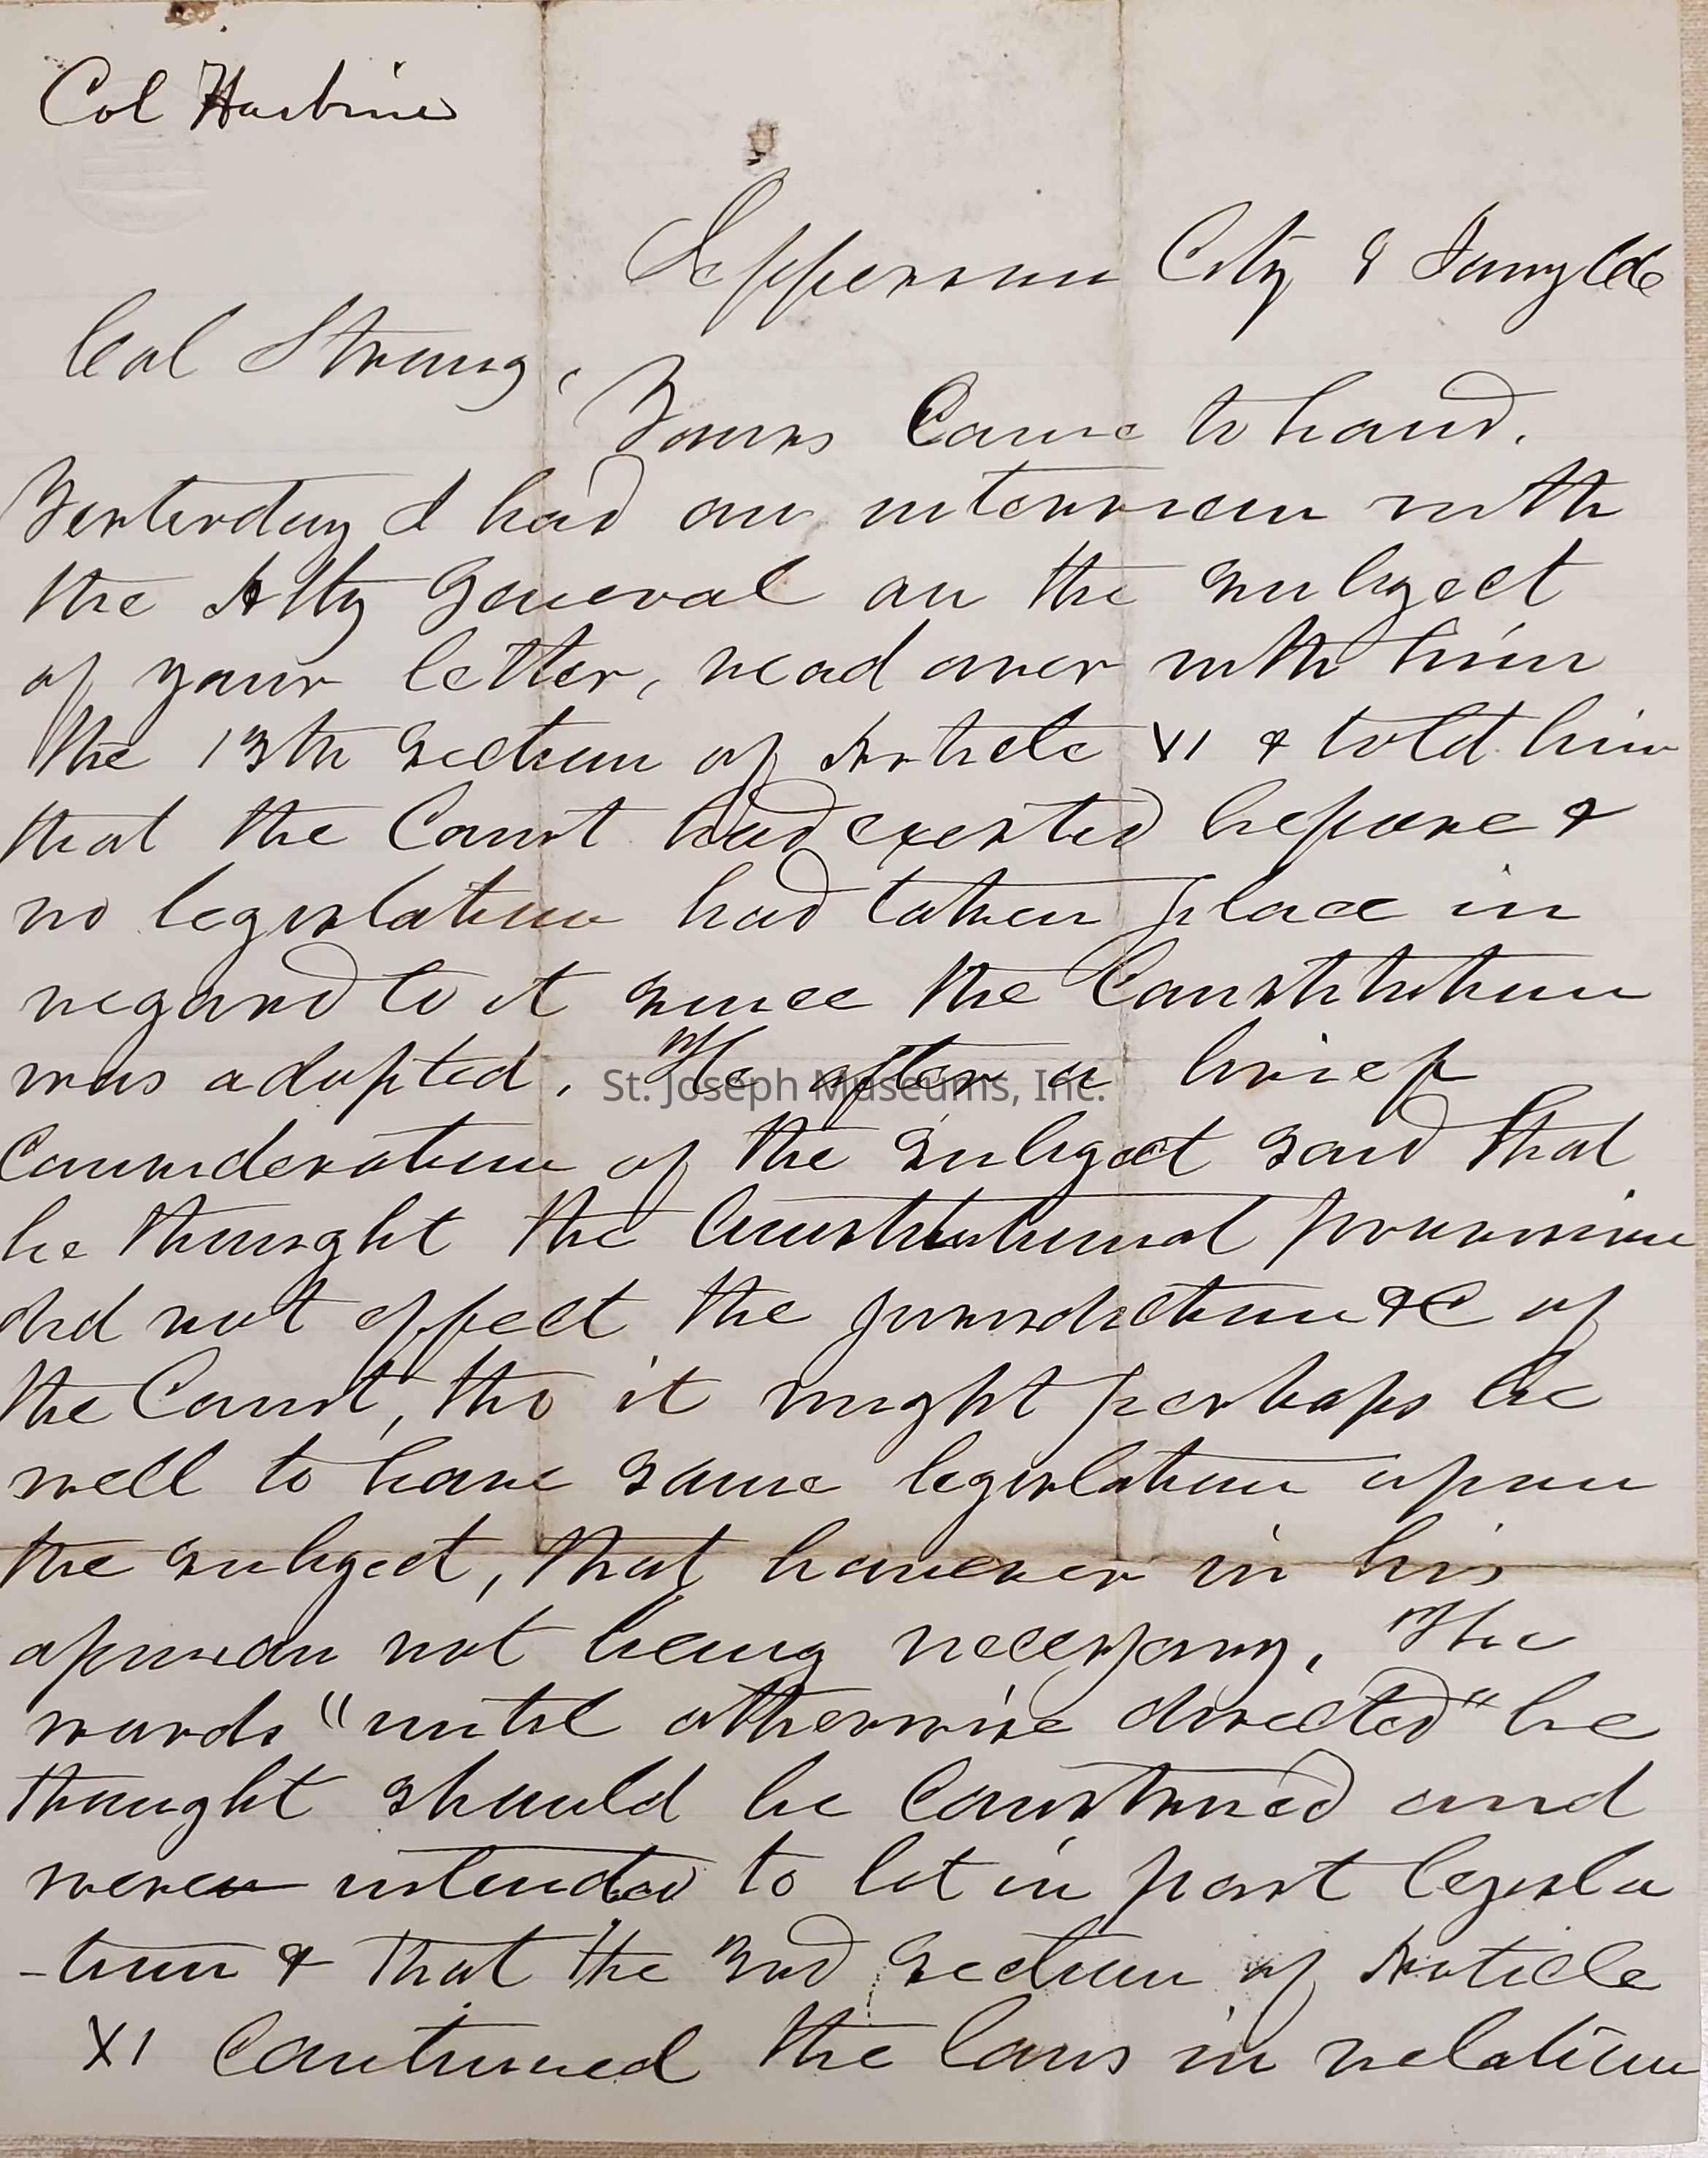 Col Harbine
Jefferson City 8 Jany 66
Col Strong,
Yours Came to hand.
Yesterday I had an interview with
the Atty General on the subject
of your letter, read over with him
the 13th section of Article XI & told him
that the Court had existed before &
no legislation had taken place in
regard to it since the Constitution
was adopted. He after a brief
St. Joseph Museums, Inc.
Consideration of the subject said that
he thought the Constitutional provision
did not effect the jurisdiction &C of
the Court, tho it might perhaps be
well to have some legislation upon
the subject, that however in his
opinion not being necessary. The
words "until otherwise directed" he
thought should be Construed and
were intended to let in past legisla
-tion & that the 3rd Section of Article
XI Continued the laws in relation